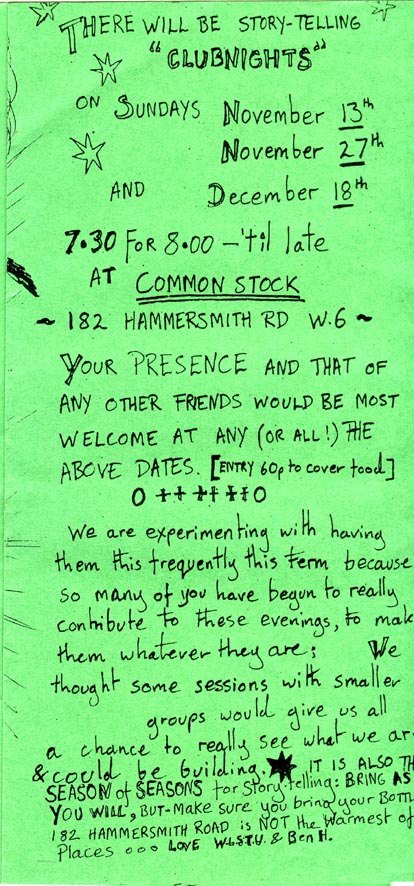 THERE WILL BE STORY-TELLING
"CLUBNIGHTS"
ON SUNDAYS November 13th
November 27th
AND December 18th
7.30 FOR 8.00 - 'til late
AT COMMON STOCK
~ 182 HAMMERSMITH RD W.6 ~
YOUR PRESENCE AND THAT OF
ANY OTHER FRIENDS WOULD BE MOST
WELCOME AT ANY (OR ALL!) THE
ABOVE DATES. [ENTRY 60p to cover food]
O ++ ++ ++ O
We are experimenting with having
them this frequently this term because
so many of you have begun to really
contribute to these evenings, to mak
them whatever they are; We
thought some sessions with smaller
groups would give us all
a chance to really see what we ar
& could be building. IT IS ALSO TH
SEASON of SEASONS for Story-telling: BRING AS
YOU WILL, BUT-Make sure you bring your BOTT
182 HAMMERSMITH ROAD is NOT the Warmest of
Places ooo LOVE W.L.S.T.U. & Ben H.